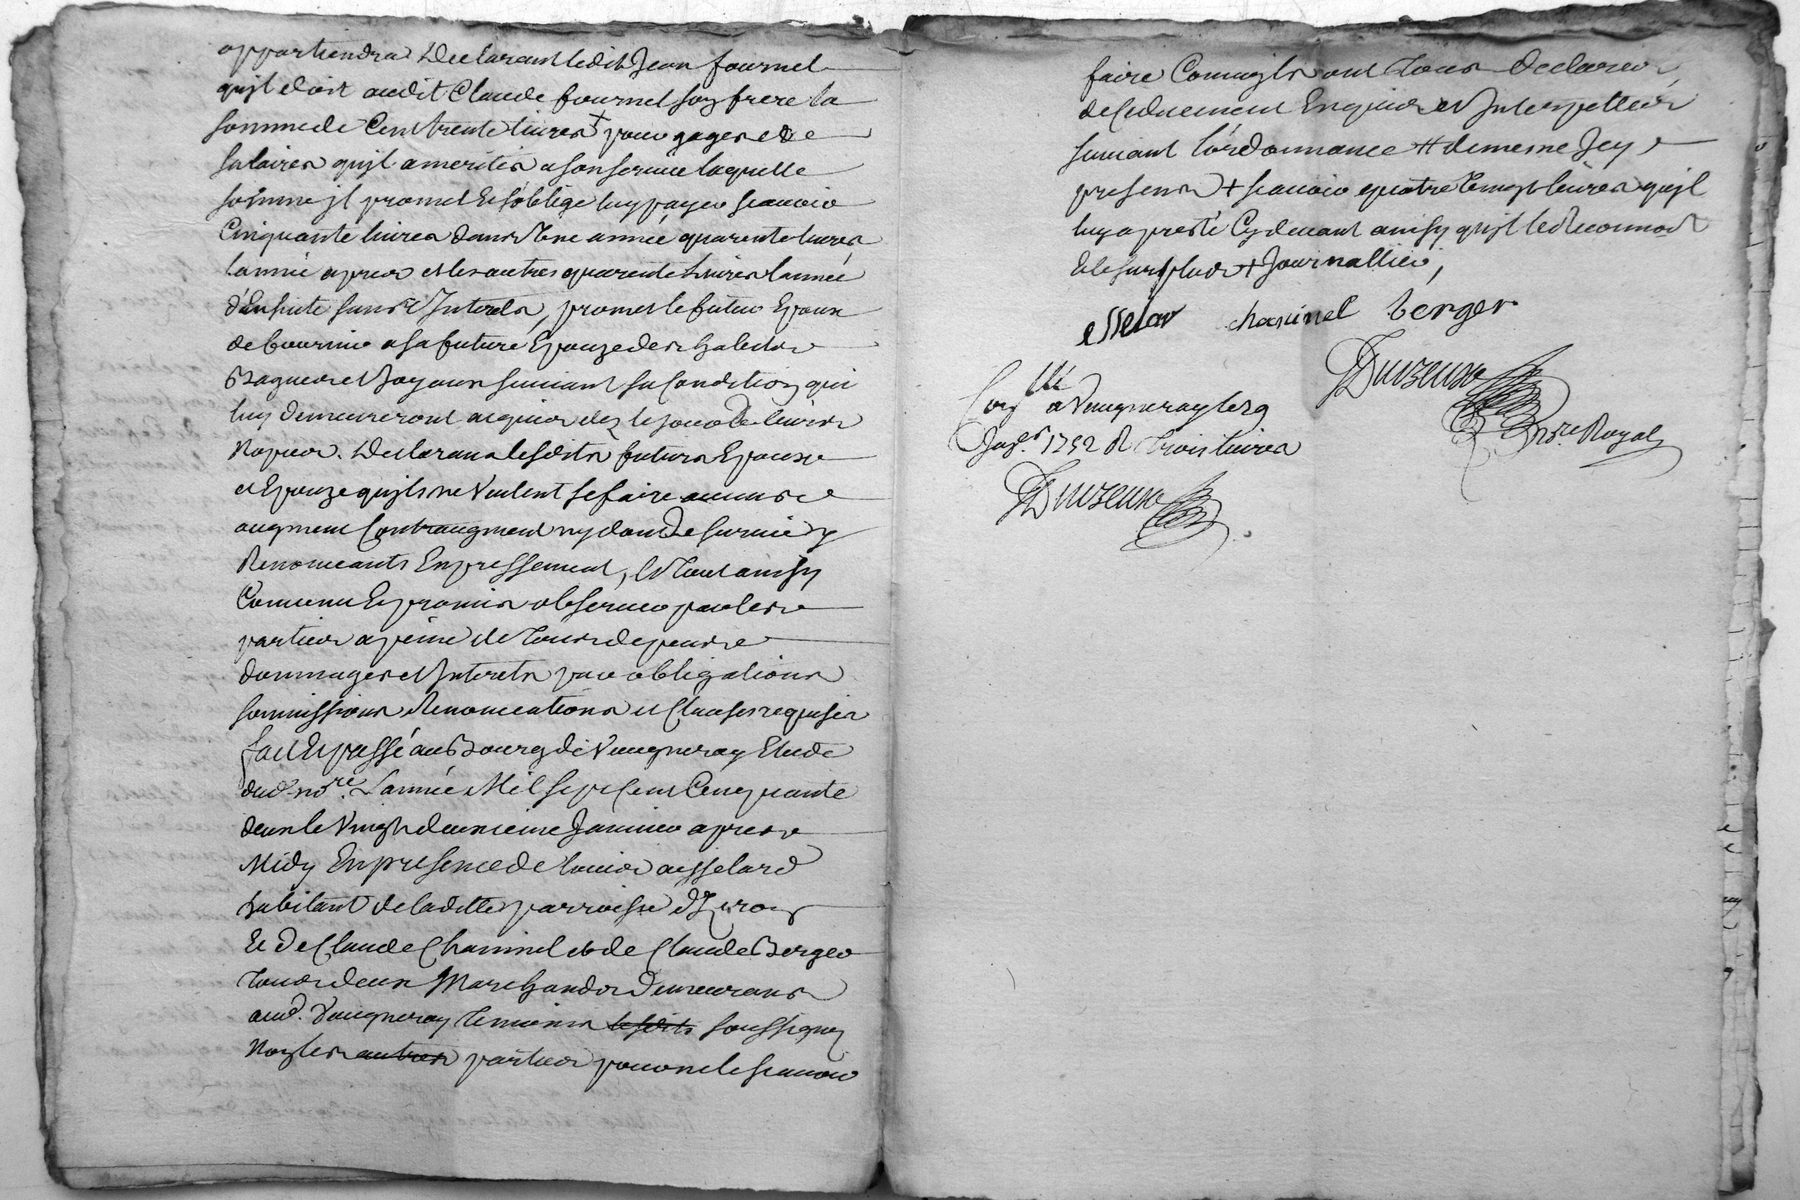 appartiendra Declarant ledit Jean fournel
qu'jl doit audit Claude fournel son frere la
somme de Cent trente livres + pour gages et
salaires qu'jl a merités a son service laquelle
somme jl promet Et s'oblige luy payer scavoir
Cinquante livres dans Une année quarente livres
l'année apres et les autres quarente livres l'année
d'Ensuite sans Interets, promet le futur Epoux
de fournir a sa future Epouze des habits
Bagues et Joyaux suivant sa Condition qui
luy demeureront acquis dez le jour de leurs
Nopces. Declarans lesdits futurs Epoux
et Epouze qu'jls ne veulent se faire aucuns
augment Contraugment ny don de survie y
Renonceants Expressement, Et Tout ainsy
Convenu Et promis observer par les
parties a peine de Tous depens
dommages et Interets par obligations
soumissions Renonciations et Clauses requises
fait Et passé au Bourg de Vaugneray Etude
dud. no.re L'année Mil sept Cent Cinquante
deux le Vingt deuxieme Janvier apres
Midy En presence de Louis asselard
habitant de laditte parroisse d'Izeron
Et de Claude Chaninel et de Claude Berger
Tous deux Marchands Demeurans
aud. Vaugneray Temoins lesdits soussignez
Non les autres parties pour ne le scavoir
faire Comm'jls ont Tous Declarés
de Ce duement Enquis et Interpellés
suivant l'ordonnance # de mesme Jcy
presens + scavoir quatre Vingt livres qu'jl
luy a presté Cy devant ainsy qu'jl le Reconnoit
Et le surplus + Journallier,
esselar chaninel berger
Con.llé a Vaugneray le 29
Jan.er 1752 R trois livres
no.re Royal